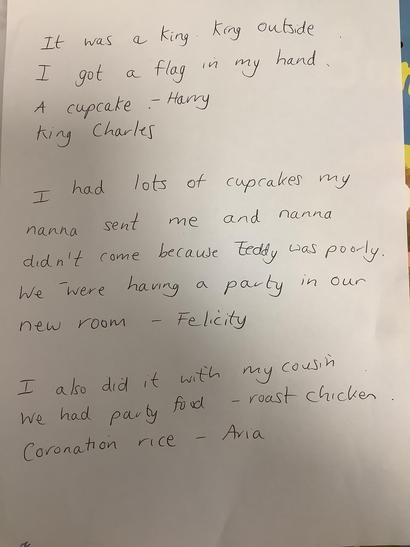 It was a king. King outside.
I got a flag in my hand.
A cupcake. - Harry
King Charles
I had lots of cupcakes my
nanna sent me and nanna
didn't come because Teddy was poorly.
We were having a party in our
new room - Felicity
I also did it with my cousin
We had party food - roast chicken.
Coronation rice - Aria